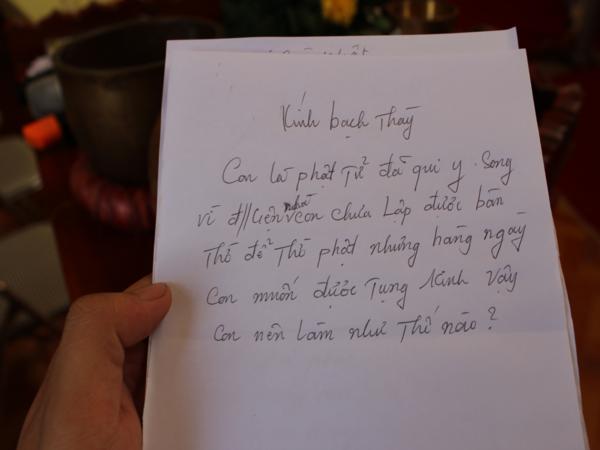 Kính bạch Thầy
Con là phật Tử đã qui y. Song
vì đ//kiện nhà con chưa Lập được bàn
Thờ để Thờ phật nhưng hàng ngày
Con muốn được Tụng Kinh Vậy
Con nên làm như Thế nào?